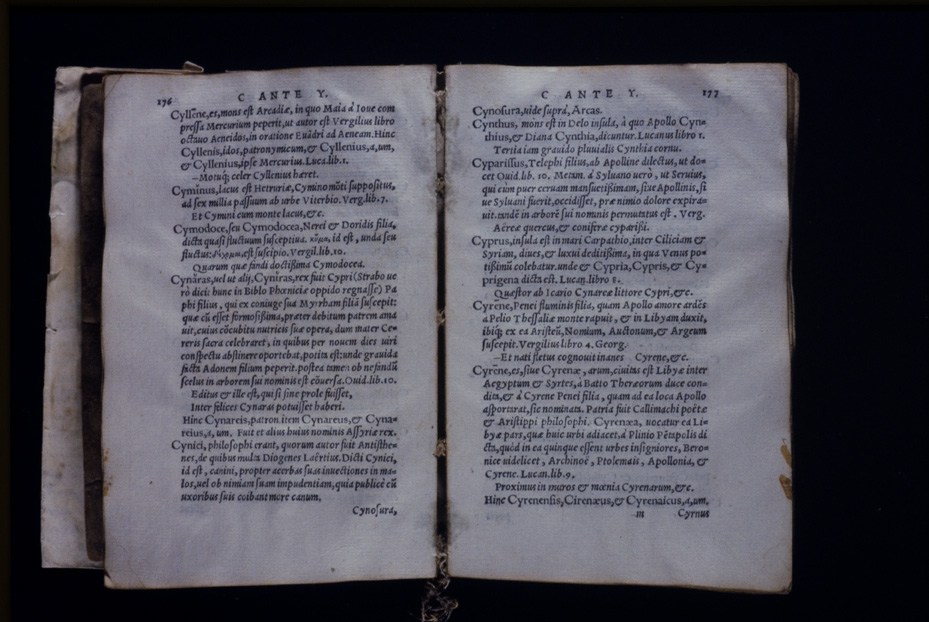 176
C ANTE Y.
Cyllene,es,mons est Arcadiæ, in quo Maia à Ioue com
pressa Mercurium peperit,ut autor est Vergilius libro
octauo Aeneidos,in oratione Euãdri ad Aeneam.Hinc
Cyllenis,idos,patronymicum,& Cyllenius,a,um,
& Cyllenius,ipse Mercurius.Luca.lib.1.
–Motuq; celer Cyllenius hæret.
Cyminus,lacus est Hetruriæ,Cymino mõti suppositus,
ad sex millia passuum ab urbe Viterbio. Verg.lib.7.
Et Cymini cum monte lacus,&c.
Cymodoce,seu Cymodocea,Nerei & Doridis filia,
dicta quasi fluctuum susceptiua. κῦμα, id est , unda seu
fluctus: est suscipio. Vergil.lib.10.
Quarum quæ fandi doctissima Cymodocea.
Cynaras,uel ut alij,Cyniras,rex fuit Cypri(Strabo ue
rò dicit hunc in Biblo Phœniciæ oppido regnasse) Pa
phi filius , qui ex coniuge sua Myrrham filiã suscepit:
quæ cũ esset formosissima,præter debitum patrem ama
uit,cuius cõcubitu nutricis suæ opera, dum mater Ce=
reris sacra celebraret, in quibus per nouem dies uiri
conspectu abstinere oportebat,potita est:unde grauida
facta Adonem filium peperit.postea tamen ob nefandũ
scelus in arborem sui nominis est cõuersa.Ouid.lib.10.
Editus & ille est, qui si sine prole fuisset,
Inter felices Cynaras potuisset haberi.
Hinc Cynareis,patron.item Cynareus,& Cyna=
reius,a,um. Fuit et alius huius nominis Assyriæ rex.
Cynici, philosophi erant, quorum autor fuit Antisthe=
nes,de quibus multa Diogenes Laërtius.Dicti Cynici,
id est , canini, propter acerbas suas inuectiones in ma=
los,uel ob nimiam suam impudentiam,quia publicè cũ
uxoribus suis coibant more canum.
Cynosura,
C ANTE Y.
177
Cynosura,uide suprà, Arcas.
Cynthus, mons est in Delo insula, à quo Apollo Cyn=
thius,& Diana Cynthia,dicuntur.Lucanus libro 1.
Tertia iam grauido pluuialis Cynthia cornu.
Cyparissus, Telephi filius,ab Apolline dilectus, ut do=
cet Ouid.lib. 10. Metam. à Syluano uerò , ut Seruius,
qui cùm puer ceruam mansuetissimam, siue Apollinis,si
ue Syluani fuerit,occidisset, præ nimio dolore expira=
uit.tandē in arborē sui nominis permutatus est . Verg.
Aëreæ quercus,& coniferæ cyparissi.
Cyprus,insula est in mari Carpathio,inter Ciliciam &
Syriam, diues,& luxui deditissima, in qua Venus po=
tissimũ colebatur.unde & Cypria,Cypris,& Cy=
prigena dicta est. Lucan.libro 8.
Quæstor ab Icario Cynareæ littore Cypri,&c.
Cyrene,Penei fluminis filia, quam Apollo amore ardēs
à Pelio Thessaliæ monte rapuit , & in Libyam duxit,
ibiq; ex ea Aristeũ,Nomium, Auctonum,& Argeum
suscepit.Vergilius libro 4. Georg.
–Et nati fletus cognouit inanes Cyrene,&c.
Cyrene,es,siue Cyrenæ, arum,ciuitas est Libyæ inter
Aegyptum & Syrtes,à Batto Theræorum duce con=
dita,& à Cyrene Penei filia, quam ad ea loca Apollo
asportarat,sic nominata. Patria fuit Callimachi poëtæ
& Aristippi philosophi. Cyrenæa, uocatur ea Li=
byæ pars,quæ huic urbi adiacet.à Plinio Pētapolis di
cta,quòd in ea quinque essent urbes insigniores, Bero=
nice uidelicet, Archinoë, Ptolemais , Apollonia, &
Cyrene. Lucan.lib.9.
Proximus in muros & mœnia Cyrenarum,&c.
Hinc Cyrenensis,Cirenæus,& Cyrenaicus,a,um,
m Cyrnus